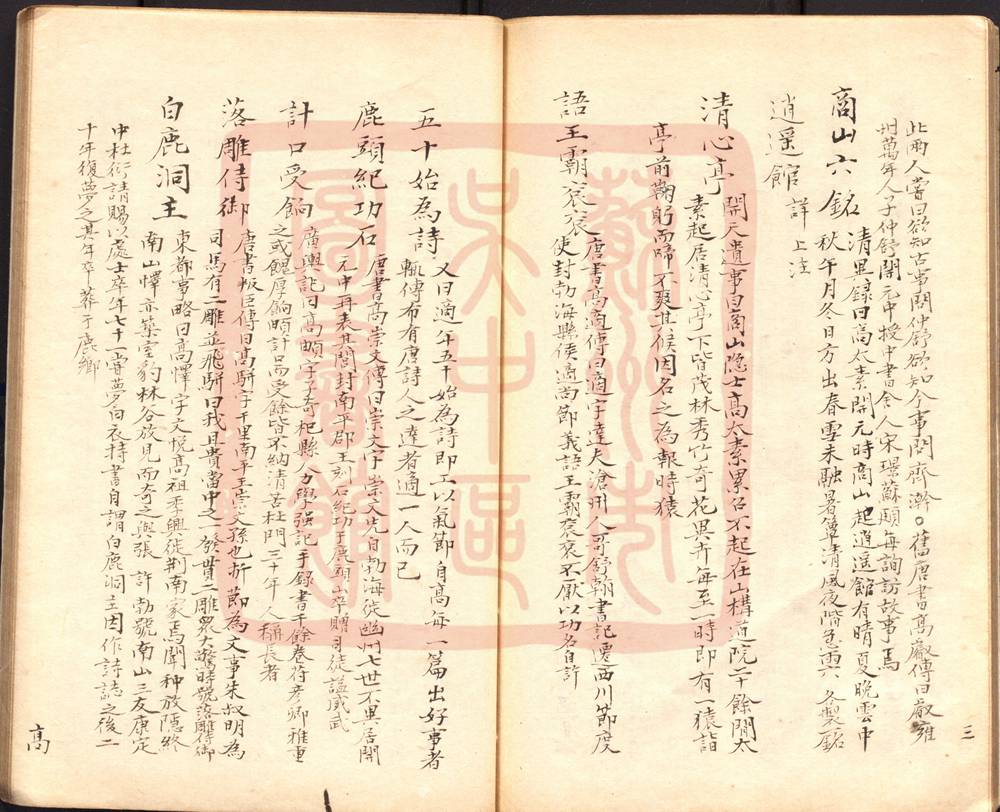 此兩人嘗曰欲知古事問仲舒欲知今事問齊澣〇舊唐書高嶷傳曰叡雍
州萬年人子仲舒開元中授中書舍人宋璟蘇頲每詢訪故事焉
商山六銘 清異錄曰高太素開元時商山起逍遙館有晴夏晚雲中
秋午月冬日方出春雪未融暑簟清風夜階急雨六各製銘
逍遥館 詳上注
清心亭 開天遺事曰商山隐士高太素累召不起在山構道院二十餘間太
素起居清心亭下皆茂林秀竹奇花異卉每至一時即有一猿詣
亭前鞠躬而啼不爽其候因名之為報時猿
語王霸衮衮 唐書高適傳曰適字達夫滄州人哥舒翰書記遷西川節度
使封勃海縣侯適尚節義語王霸衮衮不厭以功名自許
五十始為詩 又曰適年五十始為詩即工以氣節自高每一篇出好事者
輒傳布有唐詩人之達者適一人而已
鹿頭紀功石 唐書高崇文傳曰崇文字崇文先自勃海徙幽州七世不異居開
元中再表其閭封南平郡王刻石紀功于鹿頭山卒贈司徒謚威武
計口受餉 廣輿記曰高頔字子奇杞縣人力學强記手錄書千餘卷苻彦卿雅重
之或餽厚餉頔計口而受餘皆不納清苦杜門三十年人稱長者
落雕侍御 唐書叛臣傳曰高駢字千里南平王崇文孫也折節為文事朱叔明為
司馬有二雕並飛駢曰我且貴當中之一發貫二雕衆大驚時號落雕侍御
白鹿洞主 東都事略曰高懌字文悦高祖季興從荆南家焉聞种放隱終
南山懌亦築室豹林谷放見而奇之與張 許勃號南山三友康定
中杜衍請賜以處士卒年七十一嘗夢白衣持書自謂白鹿洞主因作詩誌之後二
十年復夢之其年卒葬于鹿鄉
三
高
蘇州市
吳中區
圖書館